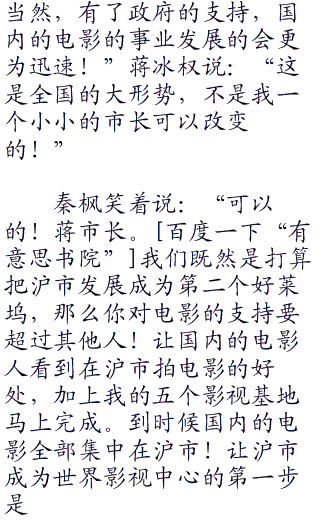 当然，有了政府的支持，国
内的电影的事业发展的会更
为迅速！”蒋冰权说：“这
是全国的大形势，不是我一
个小小的市长可以改变
的！”
秦枫笑着说：“可以
的！蒋市长。[百度一下“有
意思书院”]我们既然是打算
把沪市发展成为第二个好莱
坞，那么你对电影的支持要
超过其他人！让国内的电影
人看到在沪市拍电影的好
处，加上我的五个影视基地
马上完成。到时候国内的电
影全部集中在沪市！让沪市
成为世界影视中心的第一步
是